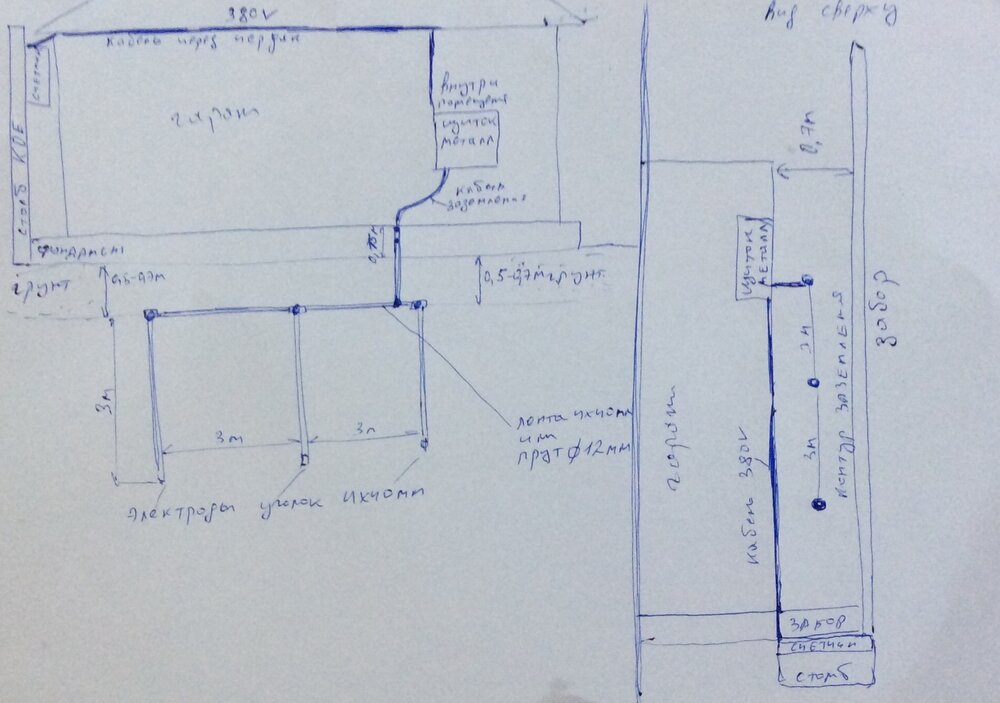 380V
Вид сверху
кабель через чердак
счетчик
гараж
внутри
помещения
щиток
металл
столб КОЕ
кабель
заземления
фундамент
грунт
0,5-0,7м
0,5-0,7м грунт
3м
3м
3м
лента 4х40мм
или
прут ф12мм
электроды уголок 4х40мм
0,7м
щиток
металл
забор
3м
3м
контур заземления
гараж
кабель 380V
забор
счетчик
столб